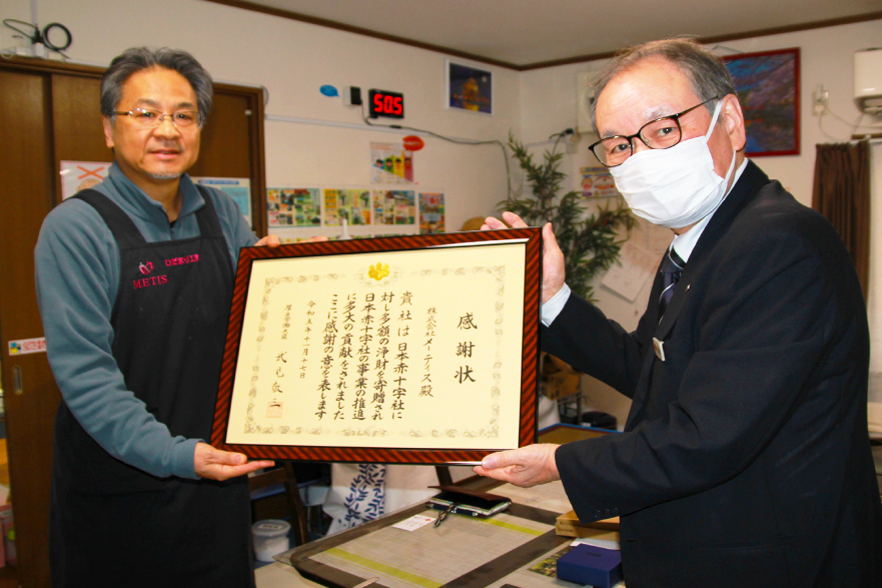 感謝状
株式会社メーティス殿
貴社は日本赤十字社に
対し多額の浄財を寄贈され
日本赤十字社の事業の推進
に多大の貢献をされました
ここに感謝の意を表します
令和五年十一月十七日
厚生労働大臣 武見敬三
METIS
505